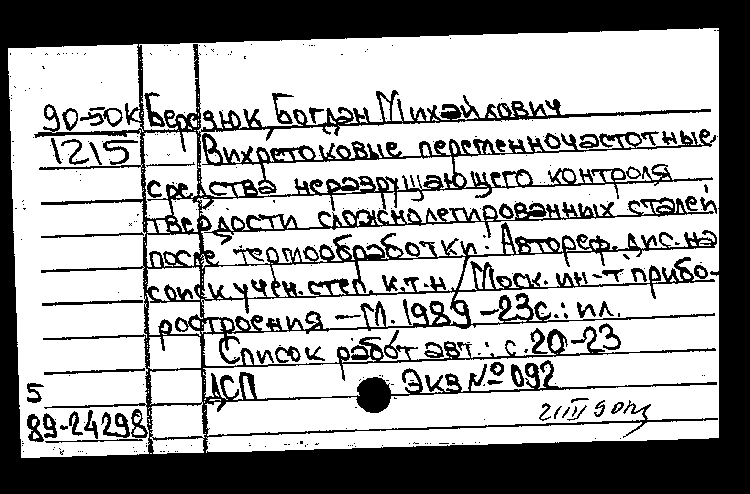 90-50к Березюк, Богдан Михайлович
1215 Вихретоковые переменночастотные
средства неразрушающего контроля
твердости сложнолегированных сталей
после термообработки: Автореф. дис. на
соиск. учен. степ. к.т.н. / Моск. ин-т прибо-
ростроения — М. 1989 — 23с.: ил.
Список работ авт.: с. 20-23
5 ДСП Экв № 092
89-24298